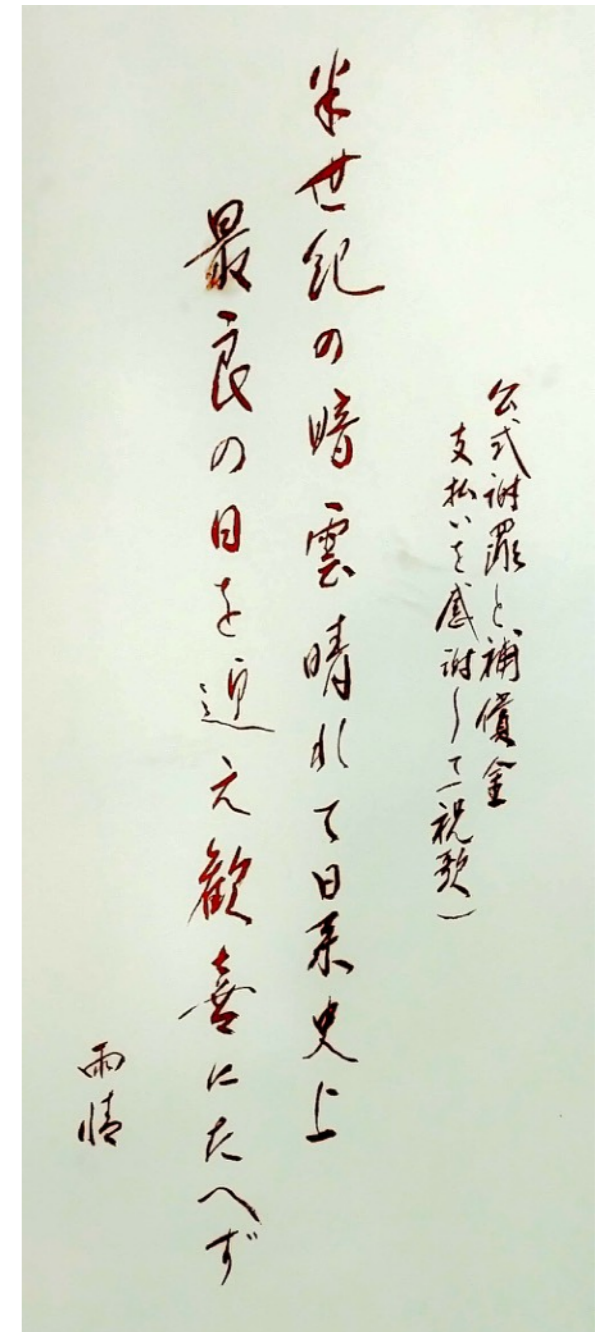 公式謝罪と補償金
支払いを感謝して(祝歌)
半世紀の暗雲晴れて日系史上
最良の日を迎え歓喜にたへず
雨情